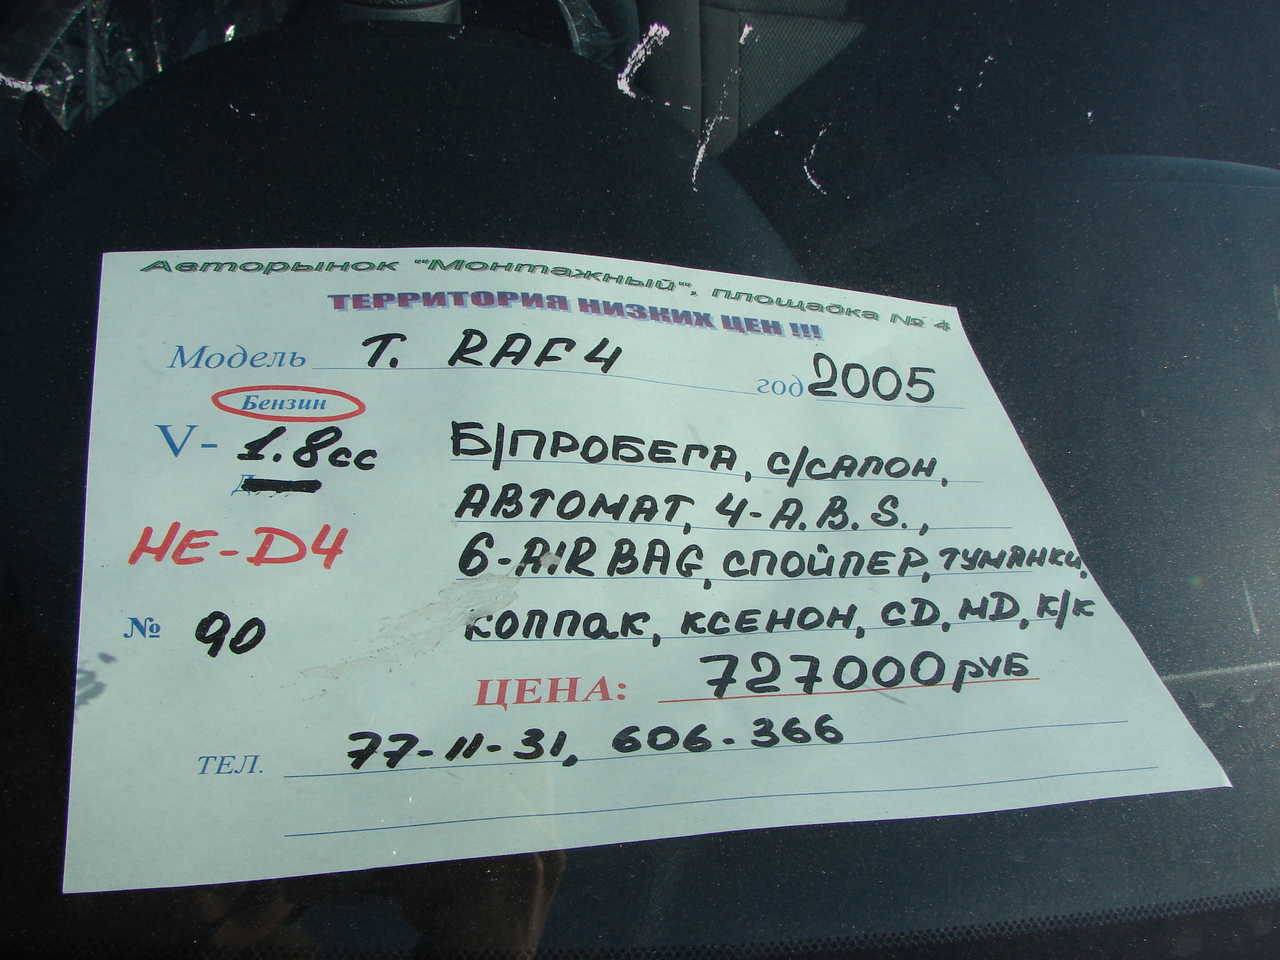 Авторынок "Монтажный", площадка № 4
ТЕРРИТОРИЯ НИЗКИХ ЦЕН !!!
Модель Т. RAF 4 год 2005
Бензин
V- 1.8cc
НЕ-D4
№ 90
Б/ПРОБЕГА, С/САЛОН,
АВТОМАТ, 4-A.B.S.,
6-AIRBAG, СПОЙЛЕР, ТУМАНКИ,
КОЛПАК, КСЕНОН, CD, MD, К/К
ЦЕНА: 727000 РУБ
ТЕЛ. 77-11-31, 606-366